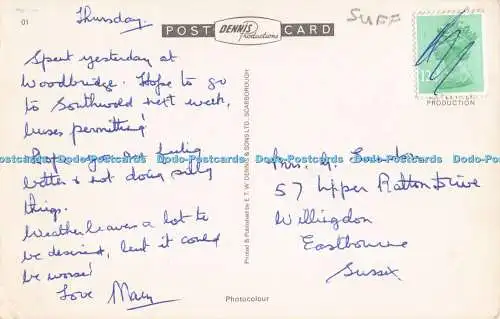 01
Thursday.
POST CARD
DENNIS
Productions
SUFF
Spent yesterday at
Woodbridge. Hope to go
to Southwold next week,
buses permitting!
Hope you are feeling
better & not doing silly
things.
Weather leaves a lot to
be desired, but it could
be worse!
Love Mary
Printed & Published by E. T. W. DENNIS & SONS LTD., SCARBOROUGH
Photocolour
PRODUCTION
Mrs. G.
57 Upper Ratton Drive
Willingdon
Eastbourne
Sussex
Dodo-Postcards Dodo-Postcards Dodo-Postcards Dodo-Postcards Dodo-Postcards Dodo-Postcards